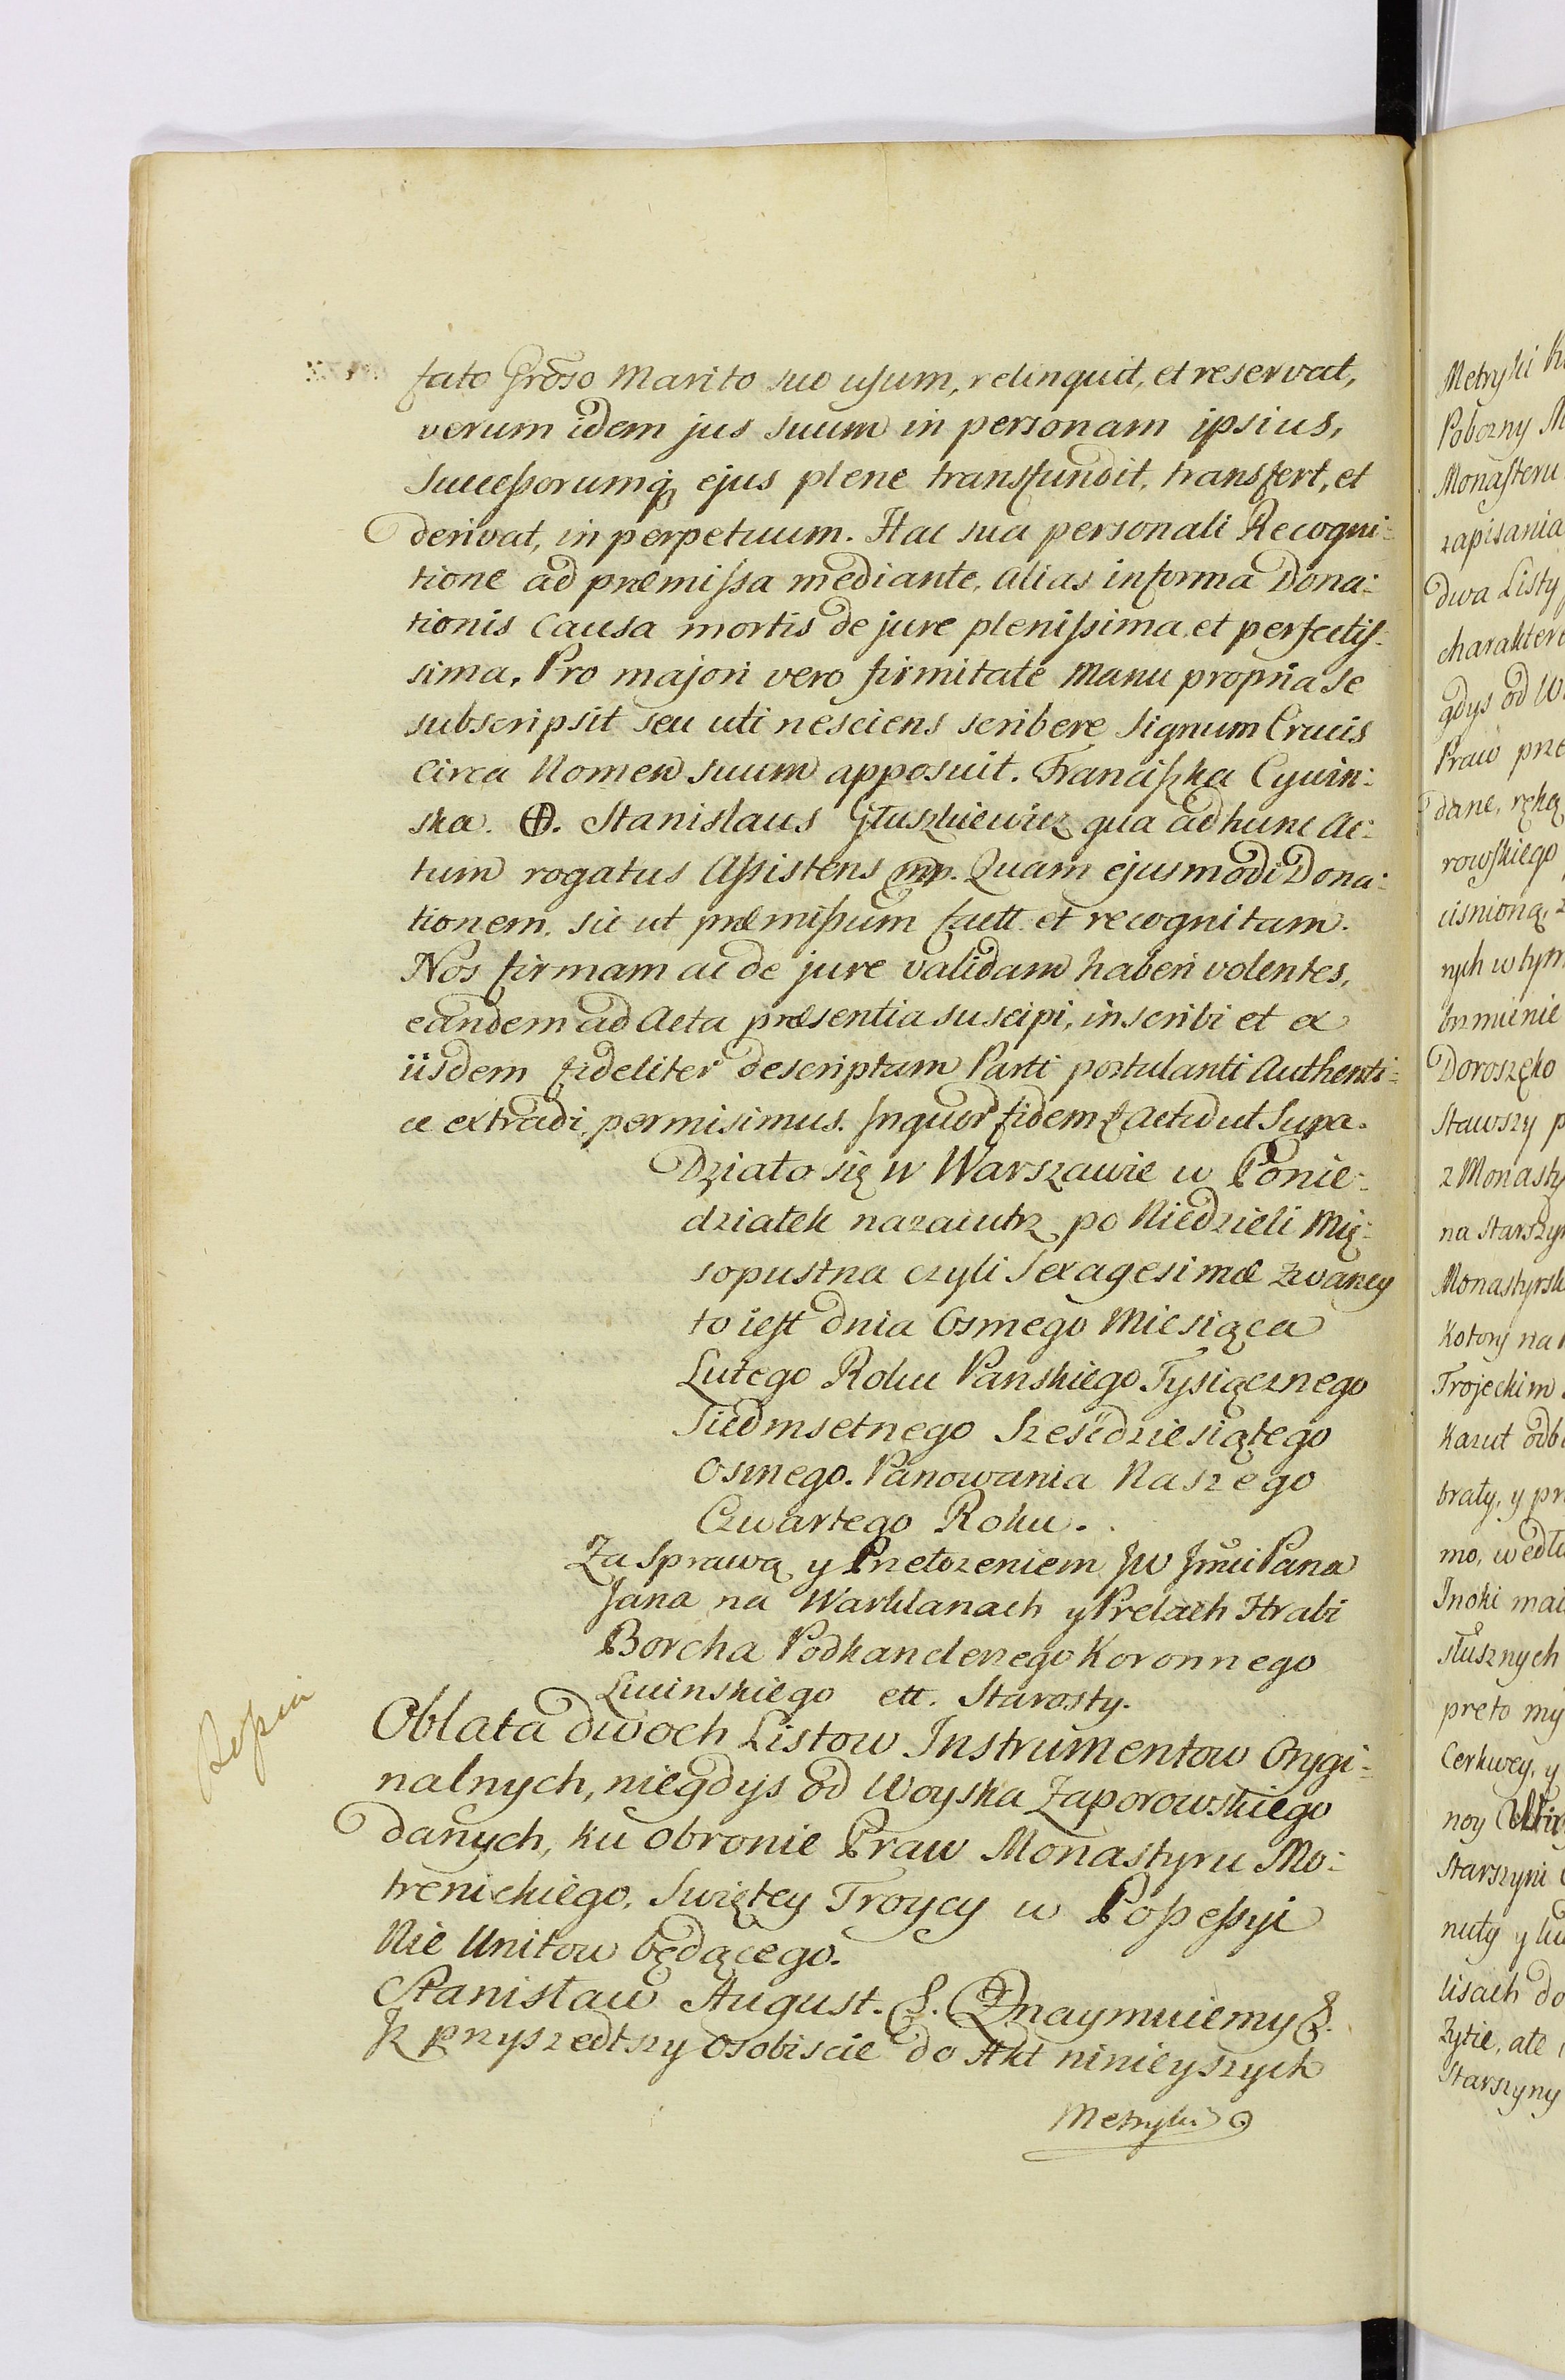 fato Grōso Marito suo usum, relinquit, et reservat,
verum idem jus suum in personam ipsius,
Successorumq ejus plene transfundit, transfert, et
derivat, in perpetuum. Hac sua personali Recogni:
tione ad præmissa mediante, alias in forma Dona:
tionis Causa mortis de jure plenissima, et perfectis-
sima, Pro majori vero firmitate Manu propria Se
subscripsit seu uti nesciens scribere Signum Crucis
circa Nomen suum apposuit. Franciszka Cywin:
ska. ⊕. Stanislaus Głuszkiewicz qua ad hunc Ac:
tum rogatus Assistens mp. Quam ejusmodi Dona:
tionem, sic ut præmissum factt. et recognitam.
Nos firmam ac de jure validam haberi volentes,
eandem ad Acta præsentia suscipi, inscribi et ex
iisdem fideliter descriptam Parti postulanti Authenti:
ce extradi, permisimus. In quor fidem & Act ut Supa.
Działo się w Warszawie w Ponie:
działek nazaiutrz po Niedzieli Mię:
sopustna czyli Sexagesimæ zwaney
to iest dnia Osmego Miesiąca
Lutego Roku Panskiego Tysiącznego
Siedmsetnego Szescdziesiątego
Osmego. Panowania Naszego
Czwartego Roku.
Za Sprawą y Przełozeniem JW Jmci Pana
Jana na Warklanach y Prelach Hrabi
Borcha Podkanclerzego Koronnego
Lucinskiego ett. Starosty.
Oblata dwoch Listow Instrumentow Orygi:
nalnych, niegdys od Woyska Zaporowskiego
danych, ku obronie Praw Monastyru Mo:
trenickiego, Swiętey Troycy w Possessyi
Nie Unitow będącego.
Stanisław August. &. Oznaymuiemy &.
Jz przyszedłszy osobiscie do Akt ninieyszych
Metryki
Metryki
Pobozny
Monasteru
zapisania
dwa Listy
gdys od
Praw prze
dane, ręką
rowskiego
cisnioną,
nych w tym
brzmienie
Doroszęko
Stawszy
z Monasty
na Starszyn
Monastyrsk
Kotory na
Trojeckim
Kazut
braty, y
mo, wedłu
Inoki
słusznych
preto my
Cerkwey, y
noy
Starszyni
nuty y
lisach do
Zytie, ale
Starszyny